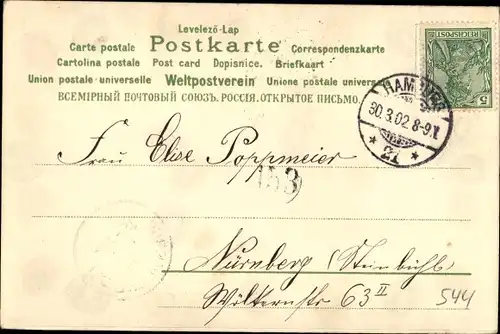 Levelező-Lap
Carte postale Postkarte Correspondenzkarte
Cartolina postale Post card Dopisnice. Briefkaart
Union postale universelle Weltpostverein Unione postale universa
ВСЕМІРНЫЙ ПОЧТОВЫЙ СОЮЗЪ. РОССІЯ. ОТКРЫТОЕ ПИСЬМО.
REICHSPOST
5
HAMBURG
30.3.02.8-9V.
* 27 *
Frau Elise Poppmeier
153
Nürnberg (Steinbühl)
63 II
544